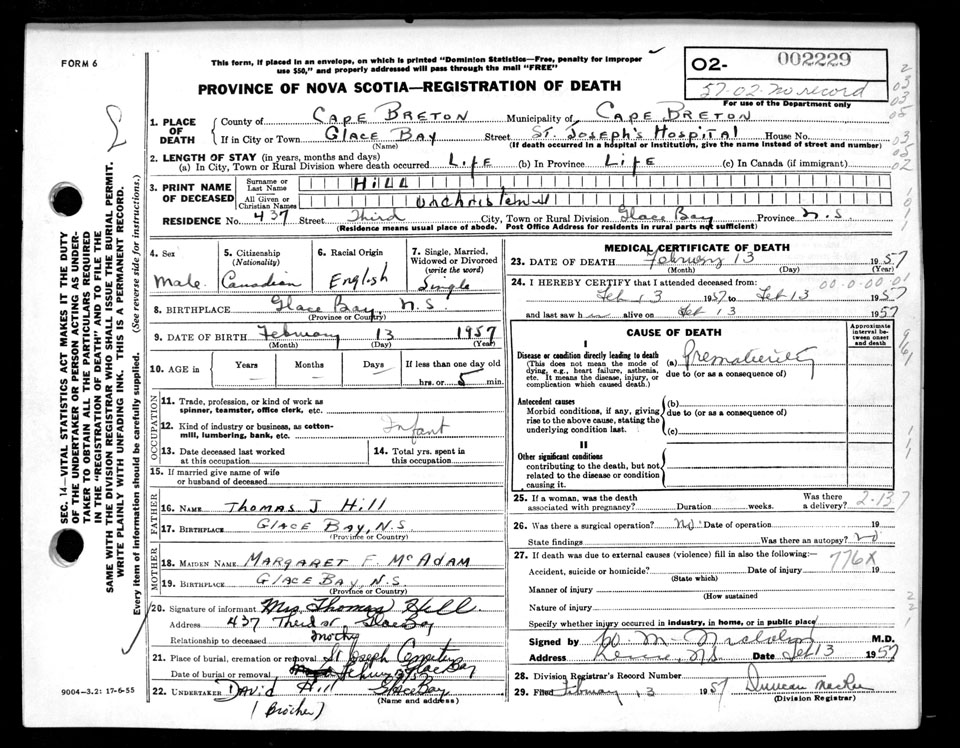 FORM 6
This form, if placed in an envelope, on which is printed "Dominion Statistics—Free, penalty for improper
use $50," and properly addressed will pass through the mail "FREE"
O2- 002229
57-02-no record
For use of the Department only
PROVINCE OF NOVA SCOTIA—REGISTRATION OF DEATH
1. PLACE OF DEATH County of CAPE BRETON Municipality of CAPE BRETON
If in City or Town GLACE BAY Street ST. JOSEPH'S HOSPITAL House No.
(Name) (If death occurred in a hospital or institution, give the name instead of street and number)
2. LENGTH OF STAY (in years, months and days)
(a) In City, Town or Rural Division where death occurred LIFE (b) In Province LIFE (c) In Canada (if immigrant)
3. PRINT NAME OF DECEASED Surname or Last Name Hill
All Given or Christian Names Unchristened
RESIDENCE No. 437 Street Third City, Town or Rural Division Glace Bay Province N.S.
(Residence means usual place of abode. Post Office Address for residents in rural parts not sufficient)
4. Sex Male
5. Citizenship (Nationality) Canadian
6. Racial Origin English
7. Single, Married, Widowed or Divorced (write the word) Single
8. BIRTHPLACE Glace Bay, N.S.
(Province or Country)
9. DATE OF BIRTH February 13 1957
(Month) (Day) (Year)
10. AGE in Years Months Days If less than one day old
hrs. or 5 min.
OCCUPATION
11. Trade, profession, or kind of work as
spinner, teamster, office clerk, etc.
12. Kind of industry or business, as cotton-
mill, lumbering, bank, etc. Infant
13. Date deceased last worked
at this occupation
14. Total yrs. spent in
this occupation
15. If married give name of wife
or husband of deceased
FATHER
16. NAME THOMAS J Hill
17. BIRTHPLACE GLACE BAY, N.S
(Province or Country)
MOTHER
18. MAIDEN NAME MARGARET F. McADAM
19. BIRTHPLACE GLACE BAY, N.S.
(Province or Country)
20. Signature of informant Mrs. Thomas Hill
Address 437 Third St Glace Bay
Relationship to deceased mother
21. Place of burial, cremation or removal St Joseph Cemetery
Date of burial or removal Glace Bay
22. UNDERTAKER David Hill Glace Bay
(Name and address)
(Brother)
9004—3.2: 17-6-55
MEDICAL CERTIFICATE OF DEATH
23. DATE OF DEATH February 13 1957
(Month) (Day) (Year)
24. I HEREBY CERTIFY that I attended deceased from:
Feb 13 1957 to Feb 13 1957
and last saw h im alive on Feb 13 1957
CAUSE OF DEATH
Approximate interval between onset and death
I
Disease or condition directly leading to death
(This does not mean the mode of
dying, e.g., heart failure, asthenia,
etc. It means the disease, injury, or
complication which caused death.)
(a) Prematurity
due to (or as a consequence of)
Antecedent causes
Morbid conditions, if any, giving
rise to the above cause, stating the
underlying condition last.
(b)
due to (or as a consequence of)
(c)
II
Other significant conditions
contributing to the death, but not
related to the disease or condition
causing it.
25. If a woman, was the death
associated with pregnancy? Duration weeks. Was there
a delivery? 2-13 7
26. Was there a surgical operation? No Date of operation 19
State findings Was there an autopsy? No
27. If death was due to external causes (violence) fill in also the following:— 776X
Accident, suicide or homicide? Date of injury 19
(State which)
Manner of injury
(How sustained
Nature of injury
Specify whether injury occurred in industry, in home, or in public place
Signed by M.D.
Address N.S. Date Feb 13 1957
28. Division Registrar's Record Number
29. Filed February 13 1957 Duncan MacRae
(Division Registrar)
SEC. 14—VITAL STATISTICS ACT MAKES IT THE DUTY
OF THE UNDERTAKER OR PERSON ACTING AS UNDER-
TAKER TO OBTAIN ALL THE PARTICULARS REQUIRED
IN THE "REGISTRATION OF DEATH" AND TO FILE THE
SAME WITH THE DIVISION REGISTRAR WHO SHALL ISSUE THE BURIAL PERMIT.
WRITE PLAINLY WITH UNFADING INK. THIS IS A PERMANENT RECORD.
Every item of information should be carefully supplied. (See reverse side for instructions.)